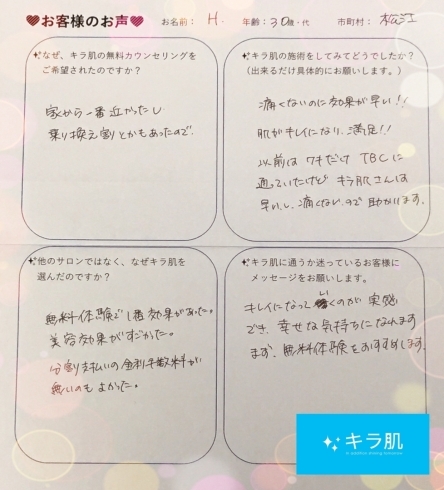 ♥お客様のお声♥ お名前: H. 年齢: 30歳・代 市町村: 松江
なぜ、キラ肌の無料カウンセリングを
ご希望されたのですか？
家から一番近かったし
乗り換え割とかもあったので、
キラ肌の施術をしてみてどうでしたか？
(出来るだけ具体的にお願いします。)
痛くないのに効果が早い!!
肌がキレイになり、満足!!
以前はワキだけ TBCに
通っていたけどキラ肌さんは
早いし、痛くないので助かります。
他のサロンではなく、なぜキラ肌を
選んだのですか？
無料体験で1番効果があった。
美容効果がすごかった。
分割支払いの金利手数料が
無いのもよかった。
キラ肌に通うか迷っているお客様に
メッセージをお願いします。
キレイになっていくのが実感
でき、幸せな気持ちになれます
まず、無料体験をおすすめします。
キラ肌